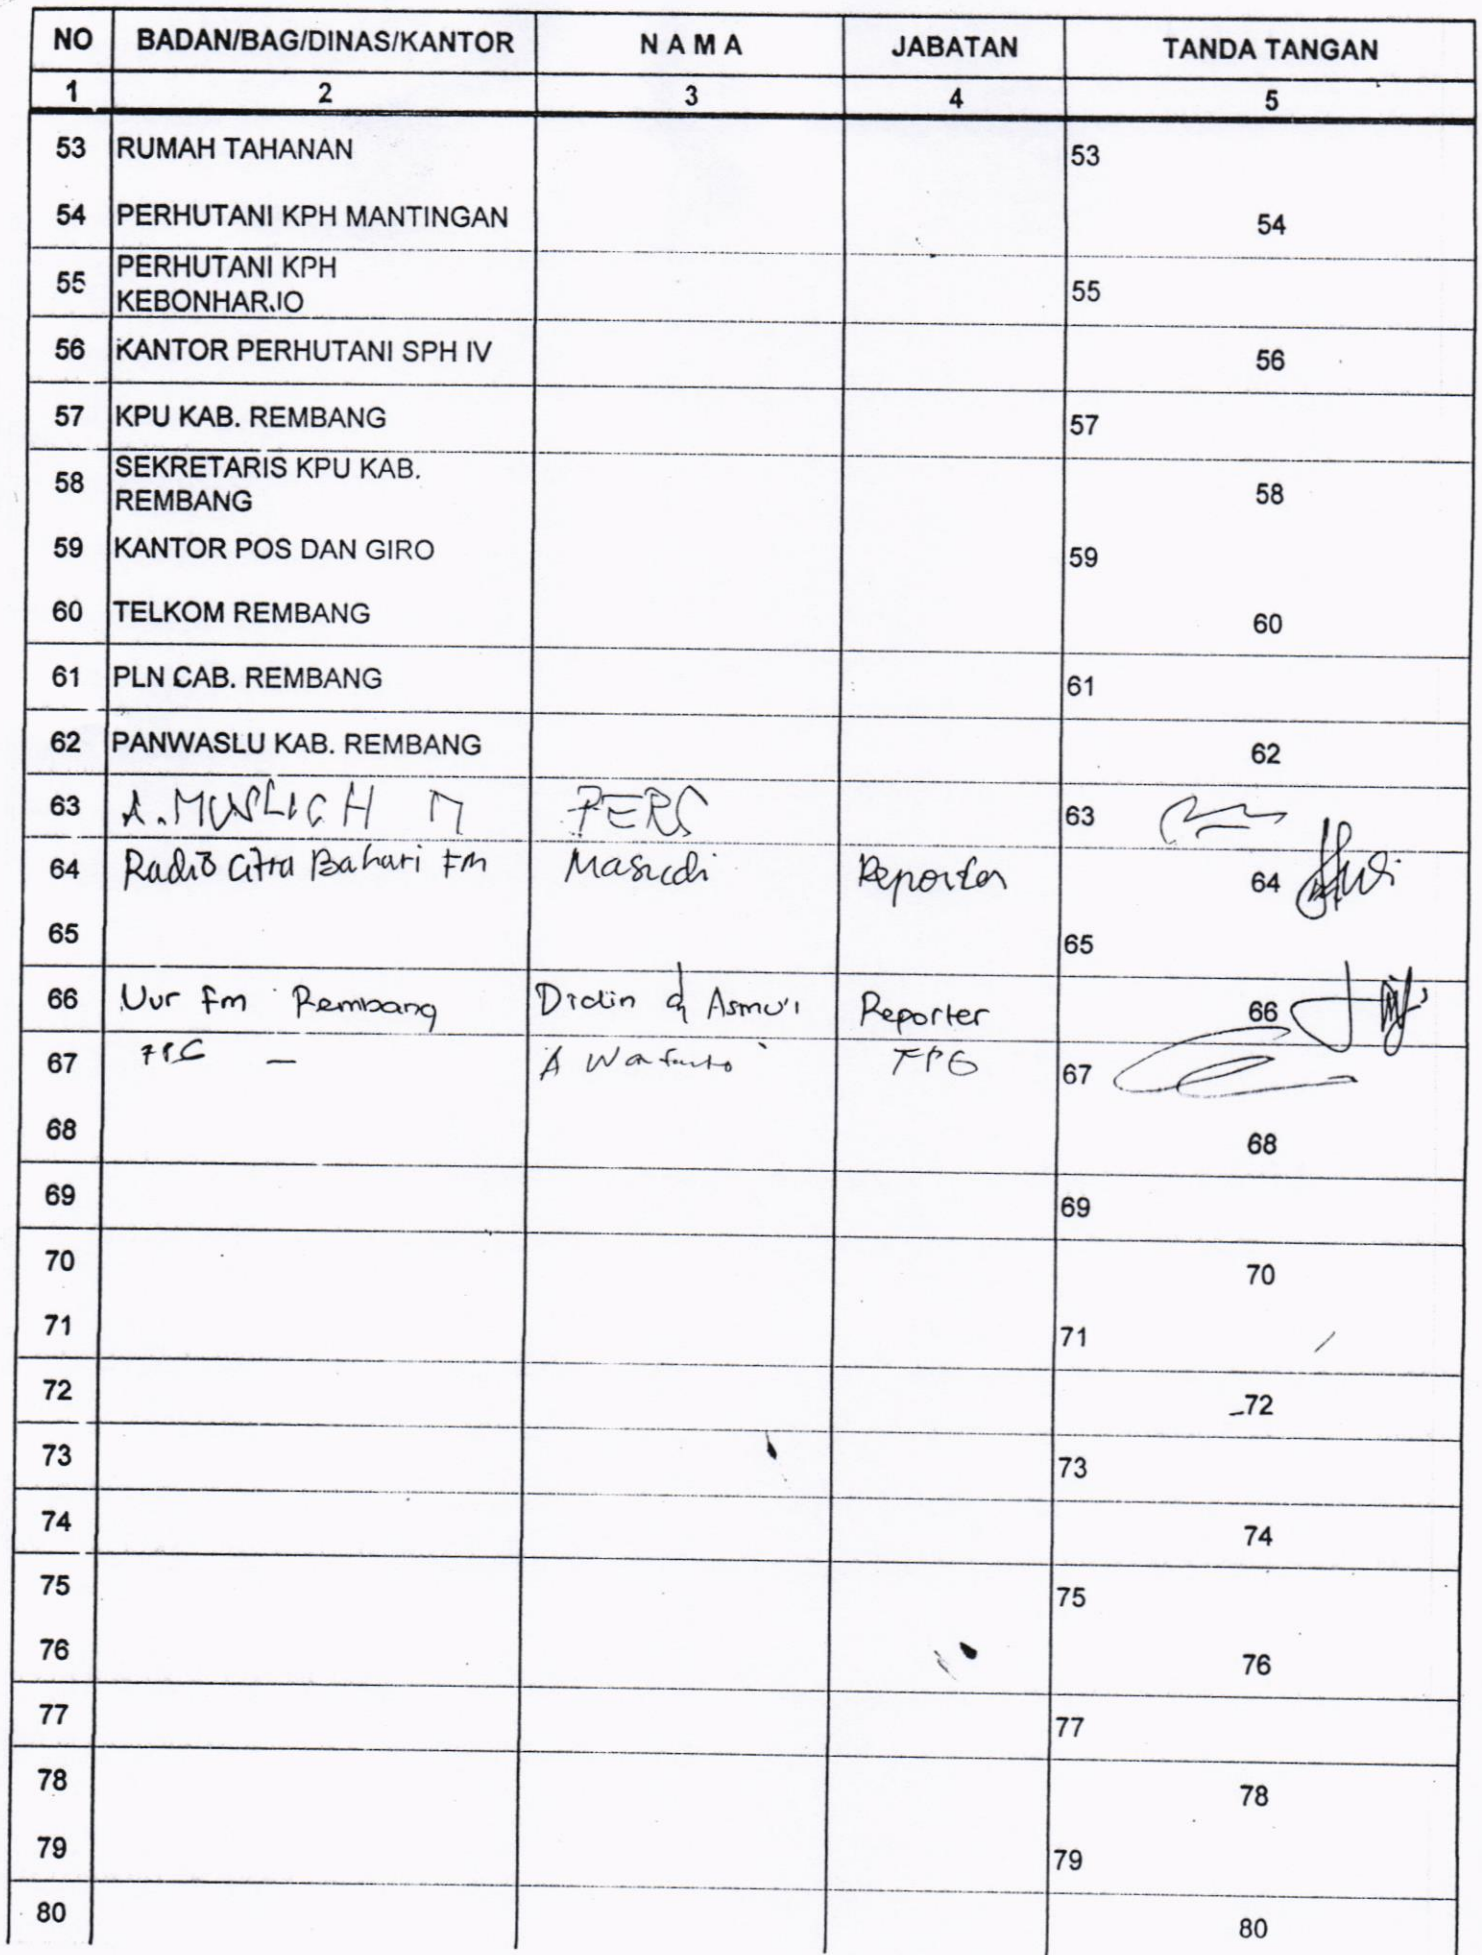 NO BADAN/BAG/DINAS/KANTOR N A M A JABATAN TANDA TANGAN
1 2 3 4 5
53 RUMAH TAHANAN 53
54 PERHUTANI KPH MANTINGAN 54
55 PERHUTANI KPH 55
KEBONHARJO
56 KANTOR PERHUTANI SPH IV 56
57 KPU KAB. REMBANG 57
58 SEKRETARIS KPU KAB. 58
REMBANG
59 KANTOR POS DAN GIRO 59
60 TELKOM REMBANG 60
61 PLN CAB. REMBANG 61
62 PANWASLU KAB. REMBANG 62
63 A. MUSLICH M PERS 63
64 Radio Citra Bahari FM Masudi Reporter 64
65 65
66 Fm Rembang Didin & Asmu'i Reporter 66
67 A 67
68 68
69 69
70 70
71 71
72 72
73 73
74 74
75 75
76 76
77 77
78 78
79 79
80 80